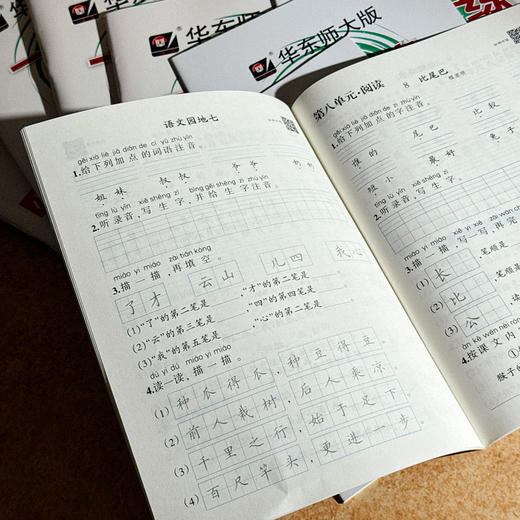 华东师大版
华东师大版
语文园地七
gěi xià liè jiā diǎn de cí yǔ zhù yīn
1.给下列加点的词语注音。
姐妹 叔叔 爷爷 奶奶
tīng lù yīn xiě shēng zì bìng gěi shēng zì zhù yīn
2.听录音,写生字,并给生字注音。
miáo yi miáo zài tián kòng
3.描一描,再填空。
了才 云山 儿四 我心
(1)“了”的第二笔是 ,“才”的第二笔是
(2)“云”的第三笔是 ,“四”的第四笔是
(3)“我”的第五笔是 ,“心”的第二笔是
dú yi dú miáo yi miáo
4.读一读,描一描。
(1)种瓜得瓜,种豆得豆。
(2)前人栽树,后人乘凉。
(3)千里之行,始于足下。
(4)百尺竿头,更进一步。
第八单元·阅读
8 比尾巴
gěi xià liè jiā diǎn de zì zhù yīn
1.给下列加点的字注音。
谁的 尾巴 比较
短小 最好 兔子
tīng lù yīn xiě shēng zì
2.听录音,写生字
miáo yi miáo xiě yi xiě
3.描一描,写一写,再完
(1)长 笔顺是
(2)比 笔顺是
(3)公 读
àn kè wén nèi róng
4.按课文内
猴子的